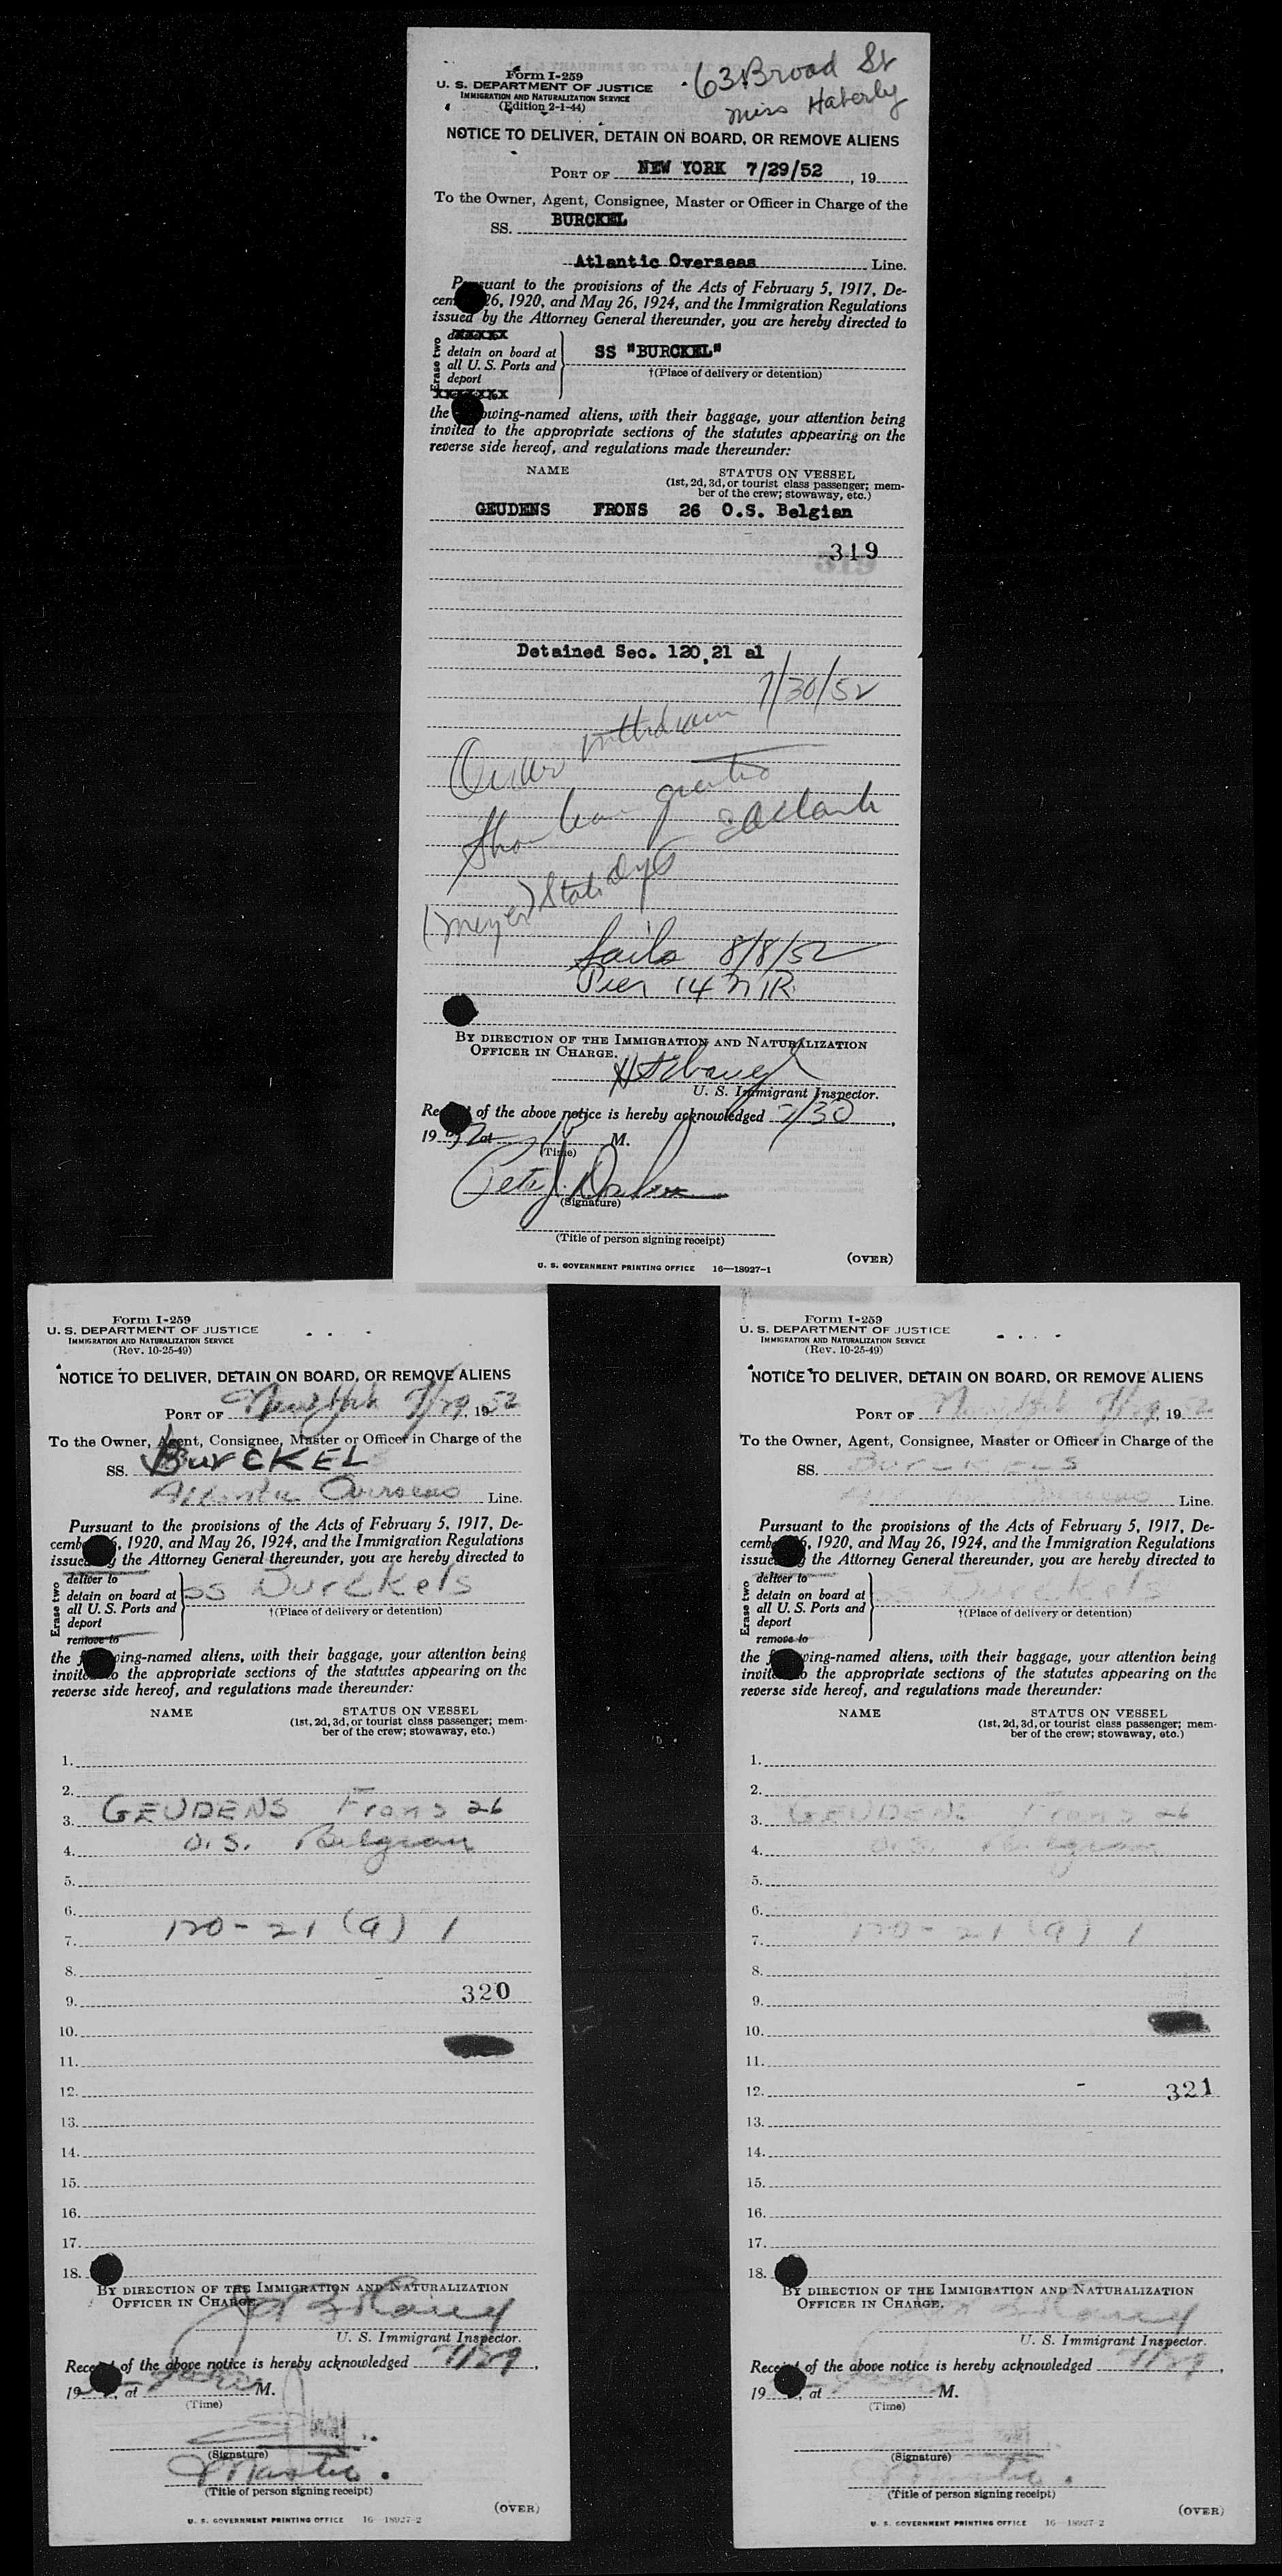 Form I-259
U. S. DEPARTMENT OF JUSTICE
IMMIGRATION AND NATURALIZATION SERVICE
(Edition 2-1-44)
63 Broad St
Miss Haberly
NOTICE TO DELIVER, DETAIN ON BOARD, OR REMOVE ALIENS
PORT OF NEW YORK 7/29/52, 19
To the Owner, Agent, Consignee, Master or Officer in Charge of the
SS. BURCKEL
Atlantic Overseas Line.
Pursuant to the provisions of the Acts of February 5, 1917, De-
cem 26, 1920, and May 26, 1924, and the Immigration Regulations
issued by the Attorney General thereunder, you are hereby directed to
Erase two
detain on board at
all U. S. Ports and
deport
SS "BURCKEL"
†(Place of delivery or detention)
the owing-named aliens, with their baggage, your attention being
invited to the appropriate sections of the statutes appearing on the
reverse side hereof, and regulations made thereunder:
NAME STATUS ON VESSEL
(1st, 2d, 3d, or tourist class passenger; mem-
ber of the crew; stowaway, etc.)
GEUDENS FRONS 26 O.S. Belgian
319
Detained Sec. 120.21 a1
7/30/52
Order withdrawn
Shore leave granted
(Meyer)
Sails 8/8/52
Pier 14 N R
BY DIRECTION OF THE IMMIGRATION AND NATURALIZATION
OFFICER IN CHARGE.
U. S. Immigrant Inspector.
Re of the above notice is hereby acknowledged 7/30,
1952 at M.
(Time)
(Signature)
(Title of person signing receipt)
(OVER)
U. S. GOVERNMENT PRINTING OFFICE 16—18927-1
Form I-259
U. S. DEPARTMENT OF JUSTICE
IMMIGRATION AND NATURALIZATION SERVICE
(Rev. 10-25-49)
NOTICE TO DELIVER, DETAIN ON BOARD, OR REMOVE ALIENS
PORT OF New York 7/29, 1952
To the Owner, Agent, Consignee, Master or Officer in Charge of the
SS. BURCKEL
Atlantic Overseas Line.
Pursuant to the provisions of the Acts of February 5, 1917, De-
cemb 6, 1920, and May 26, 1924, and the Immigration Regulations
issued by the Attorney General thereunder, you are hereby directed to
Erase two
deliver to
detain on board at
all U. S. Ports and
deport
remove to
SS Burckels
†(Place of delivery or detention)
the f wing-named aliens, with their baggage, your attention being
invite to the appropriate sections of the statutes appearing on the
reverse side hereof, and regulations made thereunder:
NAME STATUS ON VESSEL
(1st, 2d, 3d, or tourist class passenger; mem-
ber of the crew; stowaway, etc.)
1.
2.
3. GEUDENS Frans 26
4. O.S. Belgian
5.
6.
7. 120-21 (a) 1
8.
9. 320
10.
11.
12.
13.
14.
15.
16.
17.
18.
BY DIRECTION OF THE IMMIGRATION AND NATURALIZATION
OFFICER IN CHARGE.
U. S. Immigrant Inspector.
Rece of the above notice is hereby acknowledged 7/29,
19 , at M.
(Time)
(Signature)
Master.
(Title of person signing receipt)
(OVER)
U. S. GOVERNMENT PRINTING OFFICE 16—18927-2
Form I-259
U. S. DEPARTMENT OF JUSTICE
IMMIGRATION AND NATURALIZATION SERVICE
(Rev. 10-25-49)
NOTICE TO DELIVER, DETAIN ON BOARD, OR REMOVE ALIENS
PORT OF New York 7/29, 1952
To the Owner, Agent, Consignee, Master or Officer in Charge of the
SS. BURCKELS
Atlantic Overseas Line.
Pursuant to the provisions of the Acts of February 5, 1917, De-
cemb 6, 1920, and May 26, 1924, and the Immigration Regulations
issue y the Attorney General thereunder, you are hereby directed to
Erase two
deliver to
detain on board at
all U. S. Ports and
deport
remove to
SS Burckels
†(Place of delivery or detention)
the f wing-named aliens, with their baggage, your attention being
invit o the appropriate sections of the statutes appearing on the
reverse side hereof, and regulations made thereunder:
NAME STATUS ON VESSEL
(1st, 2d, 3d, or tourist class passenger; mem-
ber of the crew; stowaway, etc.)
1.
2.
3. GEUDENS Frans 26
4. O.S. Belgian
5.
6.
7. 120-21 (a) 1
8.
9.
10.
11.
12. 321
13.
14.
15.
16.
17.
18.
BY DIRECTION OF THE IMMIGRATION AND NATURALIZATION
OFFICER IN CHARGE.
U. S. Immigrant Inspector.
Rece of the above notice is hereby acknowledged 7/29,
19 , at M.
(Time)
(Signature)
Master.
(Title of person signing receipt)
(OVER)
U. S. GOVERNMENT PRINTING OFFICE 16—18927-2